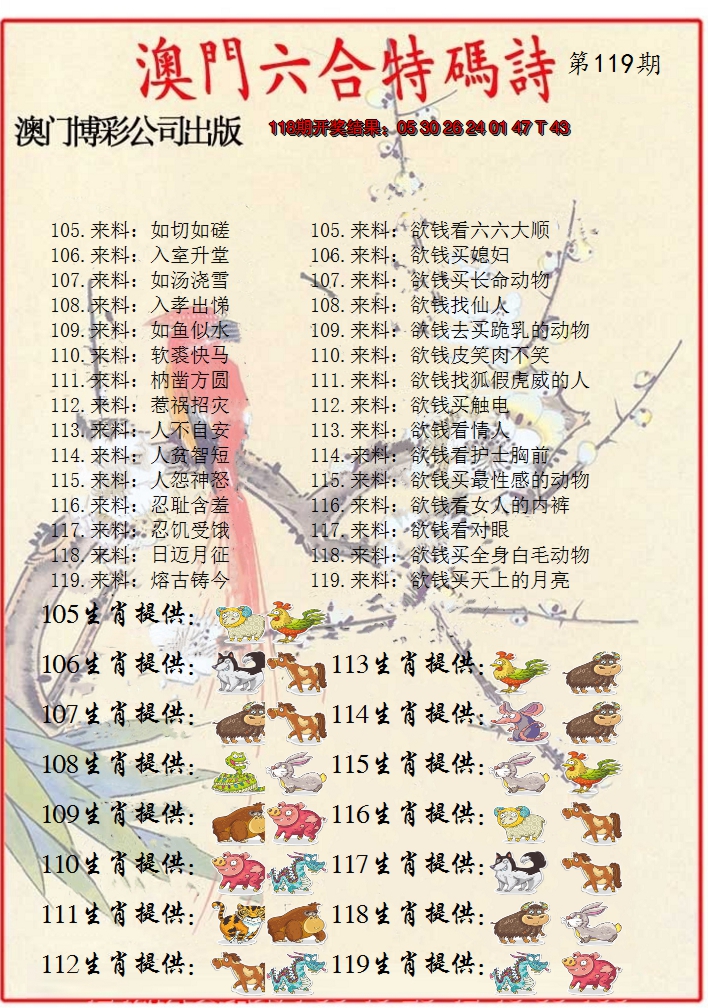 澳門六合特碼詩 第119期
澳门博彩公司出版 118期开奖结果：05 30 26 24 01 47 T 43
105.来料：如切如磋 105.来料：欲钱看六六大顺
106.来料：入室升堂 106.来料：欲钱买媳妇
107.来料：如汤浇雪 107.来料：欲钱买长命动物
108.来料：入孝出悌 108.来料：欲钱找仙人
109.来料：如鱼似水 109.来料：欲钱去买跪乳的动物
110.来料：软裘快马 110.来料：欲钱皮笑肉不笑
111.来料：枘凿方圆 111.来料：欲钱找狐假虎威的人
112.来料：惹祸招灾 112.来料：欲钱买触电
113.来料：人不自安 113.来料：欲钱看情人
114.来料：人贫智短 114.来料：欲钱看护士胸前
115.来料：人怨神怒 115.来料：欲钱买最性感的动物
116.来料：忍耻含羞 116.来料：欲钱看女人的内裤
117.来料：忍饥受饿 117.来料：欲钱看对眼
118.来料：日迈月征 118.来料：欲钱买全身白毛动物
119.来料：熔古铸今 119.来料：欲钱买天上的月亮
105生肖提供：
106生肖提供： 113生肖提供：
107生肖提供： 114生肖提供：
108生肖提供： 115生肖提供：
109生肖提供： 116生肖提供：
110生肖提供： 117生肖提供：
111生肖提供： 118生肖提供：
112生肖提供： 119生肖提供：